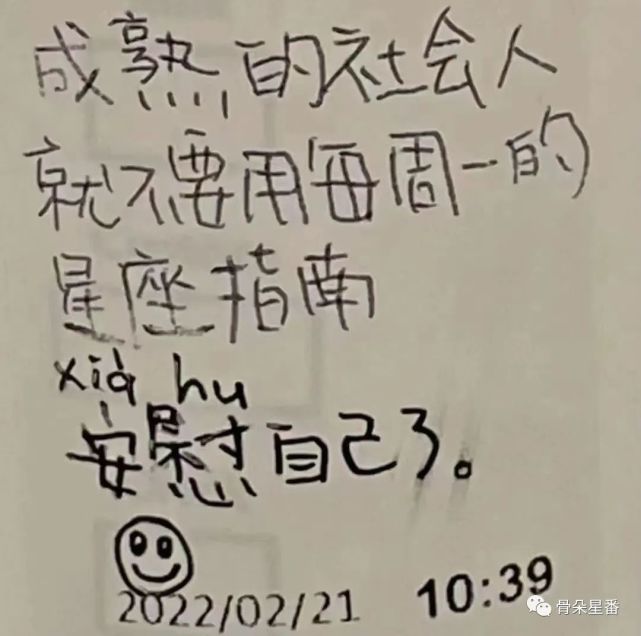 成熟的社会人
就不要用每周一的
星座指南
xià hu
安慰自己了。
2022/02/21 10:39
骨朵星番